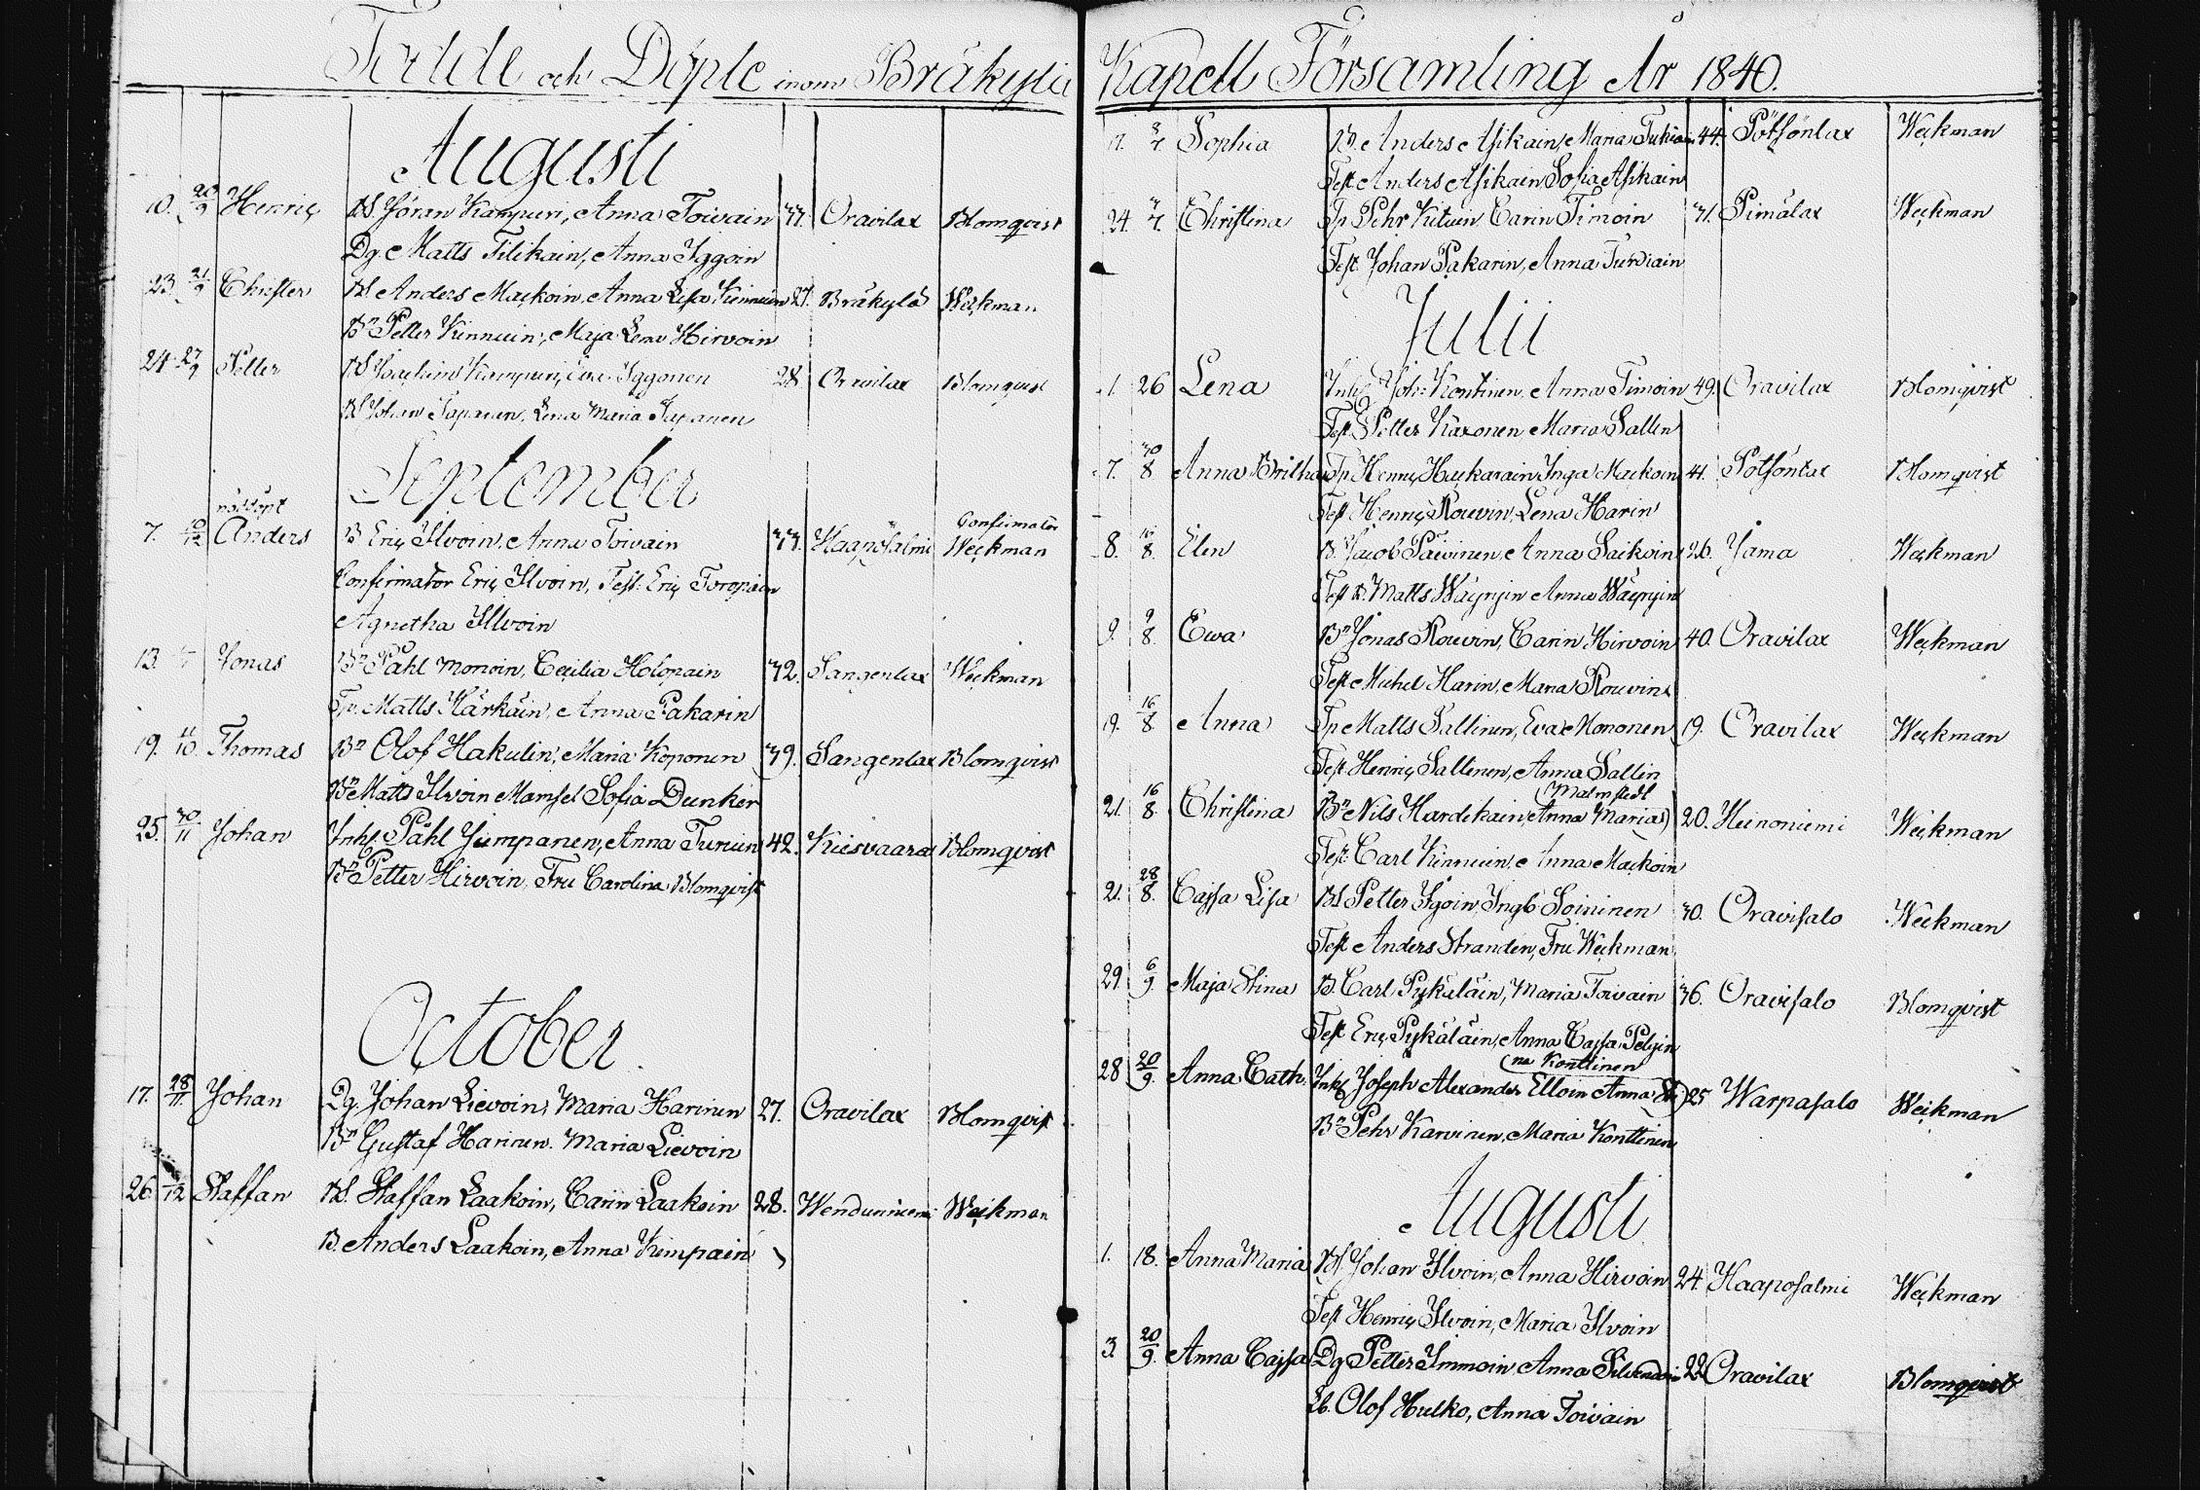 Födde och Döpte inom Bräkylä Kapell Församling År 1840.
Augusti
10. 20/9 Henric BS Jöran Kampuri, Anna Toivain 33. Oravilax Blomqvist
Dg. Matts Tilikain, Anna Iggoin
23. 21/9 Christer BS Anders Mackoin, Anna Lisa Kinnuin 27. Bräkylä Weckman
Bn Petter Kinnuin, Maja Lena Hirvoin
24. 27/9 Petter BS Joachim Kampuri, Eva Iggonen 28 Oravilax Blomqvist
BS Johan Tapanen, Lena Maria Tapanen
September
nödöpt
7. 10/12 Anders B Eric Ilvoin, Anna Toivain 33. Haaposalmi Confirmator Weckman
Confirmator Eric Ilvoin, Test: Eric Toropain
Agnetha Ilvoin
13. Jonas Bn Påhl Monoin, Cecilia Holopain 32. Sangenlax Weckman
Tp. Matts Härkäin, Anna Pakarin
19. 11/10. Thomas Bn Olof Hakulin, Maria Koponen 39. Sangenlax Blomqvist
Bn Matts Ilvoin Mamsel Sofia Dunker
25. 30/11 Johan Inh Påhl Jumpanen, Anna Turuin 42. Kiisvaara Blomqvist
Bn Petter Hirvoin, Fru Carolina Blomqvist
October
17. 28/11. Johan Dg. Johan Lievoin, Maria Harinen 27. Oravilax Blomqvist
Bn Gustaf Harinen. Maria Lievoin
26. /12 Staffan BS. Staffan Laakoin, Carin Laakoin 28. Wenduniemi Weckman
B. Anders Laakoin, Anna Kimpain
17. 3/7. Sophia B. Anders Asikain, Maria Tukiain 44. Pötsönlax Weckman
Test Anders Asikain Sofia Asikain
24. /7. Christina Tp Pehr Kituin Carin Timoin 31. Pimälax Weckman
Test. Johan Pakarin, Anna Tukiain
Julii
1. 26 Lena Inh Joh: Konttinen, Anna Timoin 49. Oravilax Blomqvist
Test Petter Käxonen Maria Sallin
7. 30/8 Anna Britha Tp Henric Huckarain, Inga Mackoin 41. Pötsönlax Blomqvist
Test Henric Rouvin, Lena Harin
8. 16/8. Elin B. Jacob Päivinen, Anna Saikoin 26. Jama Weckman
Test B. Matts Wäyryin Anna Wäyryin
9. 9/8. Ewa Bn Jonas Rouvin, Carin Hirvoin 40. Oravilax Weckman
Test Michel Harin, Maria Rouvin
19. 16/8. Anna Tp Matts Sallinen, Eva Mononen 19. Oravilax Weckman
Test Henric Sallinen, Anna Sallin
21. 16/8. Christina Bn Nils Hardikain, Anna Maria (Malmstedt) 20. Heinoniemi Weckman
Test. Carl Kinnuin, Anna Mackoin
21. 28/8. Cajsa Lisa BS Petter Igoin, Ingb Soininen 30. Oravisalo Weckman
Test Anders Stranden, Fru Weckman
29. 6/9 Maja Stina B. Carl Pykäläin, Maria Toivain 36. Oravisalo Blomqvist
Test Eric Pykäläin, Anna Cajsa Pelgin
28 20/9. Anna Cath. Inh Joseph Alexander Elloin Anna Sti(na Konttinen) 25 Warpasalo Weckman
Bn Pehr Karvinen, Maria Konttinen
Augusti
1. 18. Anna Maria BS Johan Ilvoin, Anna Hirvoin 24. Haaposalmi Weckman
Test Henric Ilvoin, Maria Ilvoin
3. 20/9. Anna Cajsa Dg Petter Immoin Anna Silvendoin 22 Oravilax Blomqvist
Lb. Olof Hulko, Anna Toivain